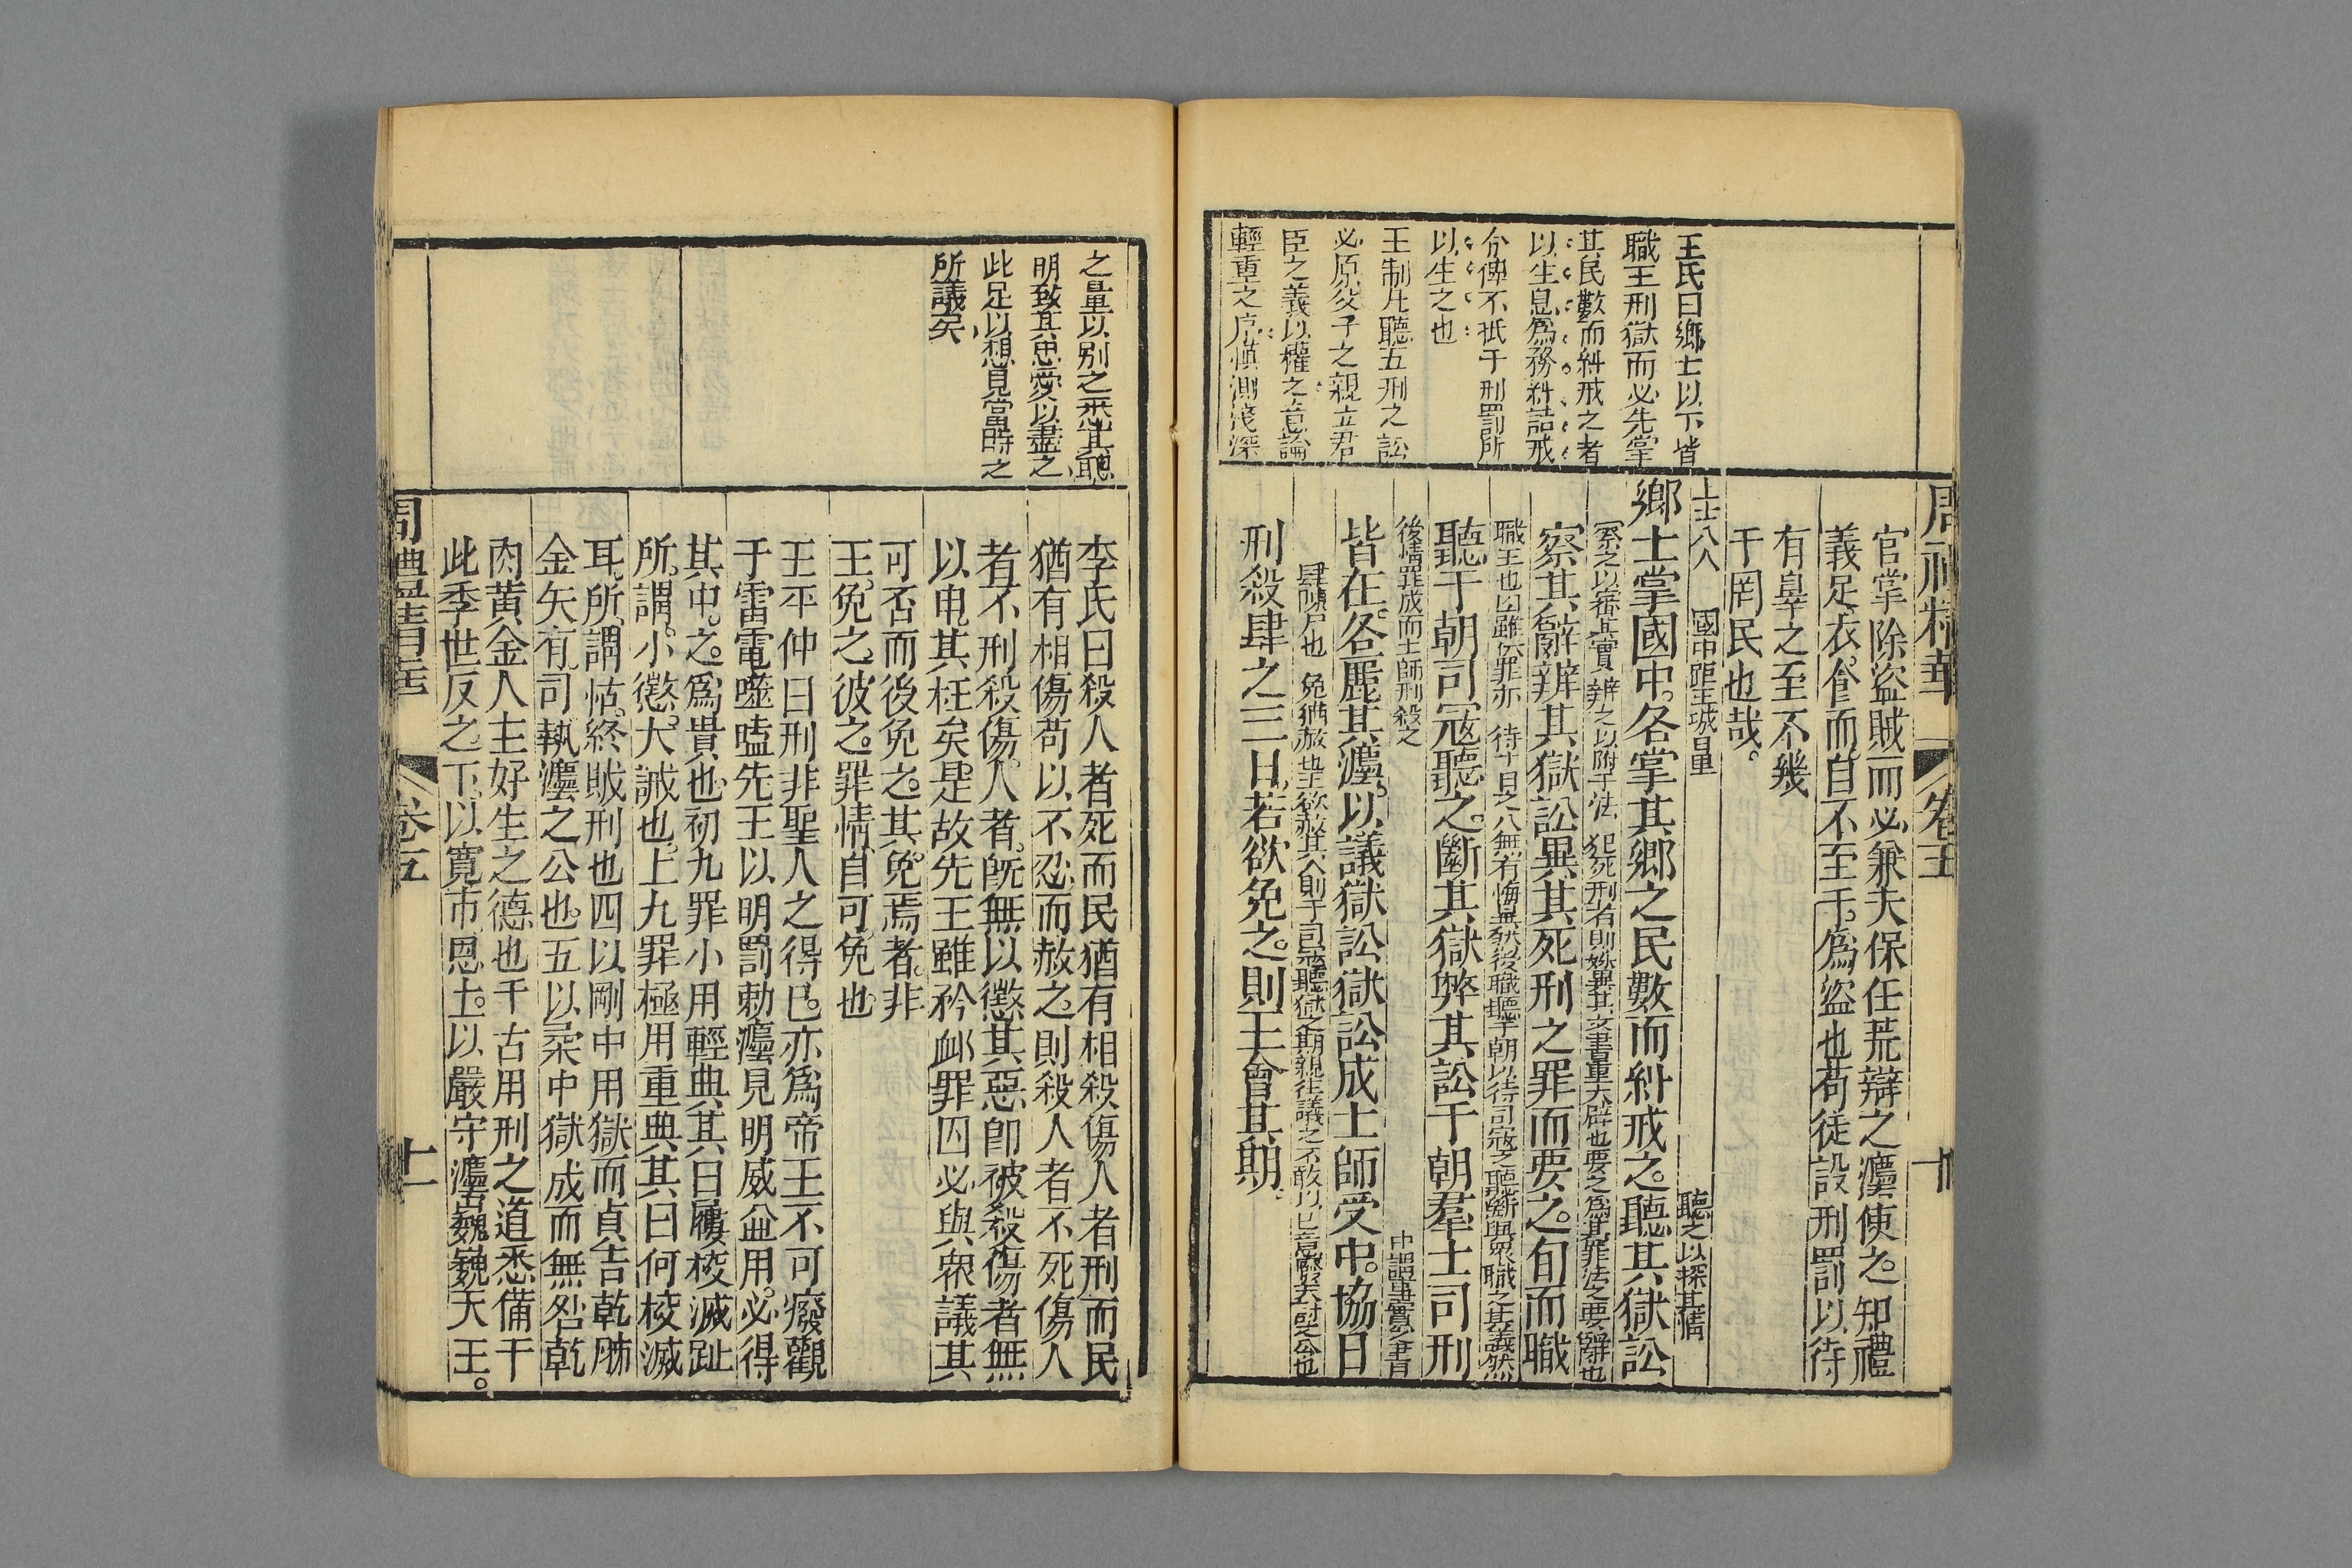 周禮精華
卷五
王氏曰鄉士以下皆
職主刑獄而必先掌
其民數而糾戒之者
以生息爲務糾詰戒
令俾不抵于刑罰所
以生之也
王制凡聽五刑之訟
必原父子之親立君
臣之義以權之意論
輕重之序慎測淺深
官掌除盜賊而必兼夫保任荒辯之灋使之知禮
義足衣食而自不至于爲盜也苟徒設刑罰以待
有辠之至不幾
于罔民也哉
上士八人
國中距王城百里
聽之以探其情
鄉士掌國中各掌其鄉之民數而糾戒之聽其獄訟
察之以審其實 辨之以附于法 犯死刑者則殊異其文書重大辟也要之爲其罪法之要辭也
察其辭辨其獄訟異其死刑之罪而要之旬而職
職主也囚雖伏罪亦 待十日之久無有悔異然後職聽于朝以待司寇之聽斷與衆職之共議然
聽于朝司寇聽之斷其獄弊其訟于朝羣士司刑
後情罪成而士師刑殺之
皆在各麗其灋以議獄訟獄訟成士師受中協日
肆陳尸也 免猶赦也王欲赦其人則于司寇聽獄之期親往議之不敢以己意
刑殺肆之三日若欲免之則王會其期
之量以別之悉其聰
明致其忠愛以盡之
此足以想見當時之
所議矣
李氏曰殺人者死而民猶有相殺傷人者刑而民
猶有相傷苟以不忍而赦之則殺人者不死傷人
者不刑殺傷人者既無以懲其惡卽彼殺傷者無
以申其枉矣是故先王雖矜卹罪囚必與衆議其
可否而後免之其免焉者非
王免之彼之罪情自可免也
王平仲曰刑非聖人之得已亦爲帝王不可廢觀
于雷電噬嗑先王以明罰勅灋見明威並用必得
其中之爲貴也初九罪小用輕典其曰屨校滅趾
所謂小懲大誡也上九罪極用重典其曰何校滅
耳所謂怙終賊刑也四以剛中用獄而貞吉乾胏
金矢有司執灋之公也五以柔中獄成而無咎乾
肉黃金人主好生之德也千古用刑之道悉備于
此季世反之下以寬市恩上以嚴守灋巍巍天王
周禮精華
卷五
十一